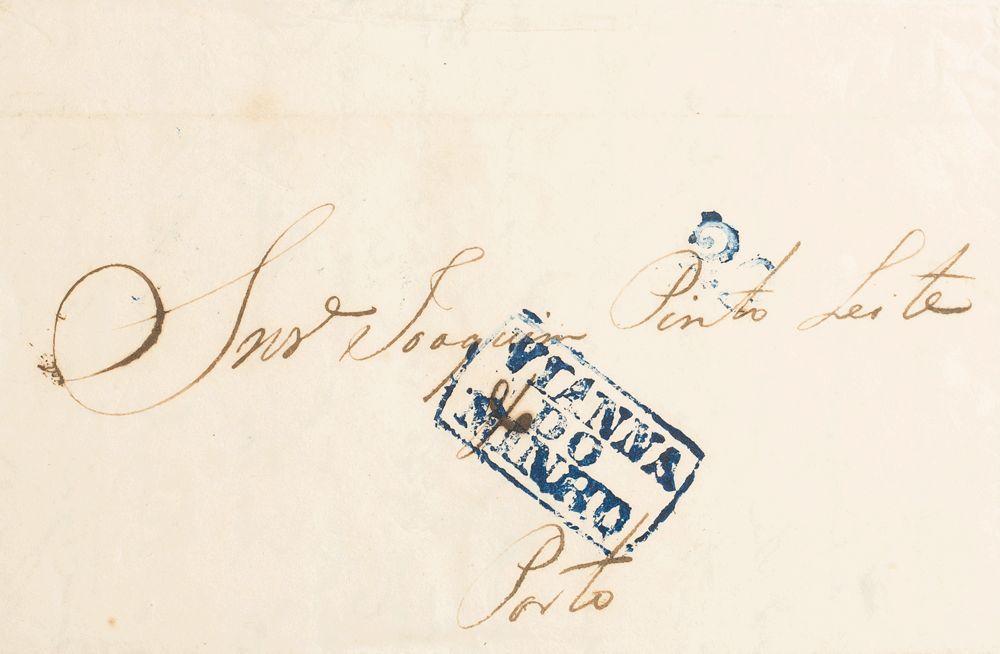 Snr.e Joaquim Pinto Leite
VIANNA
DO
MINHO
Porto